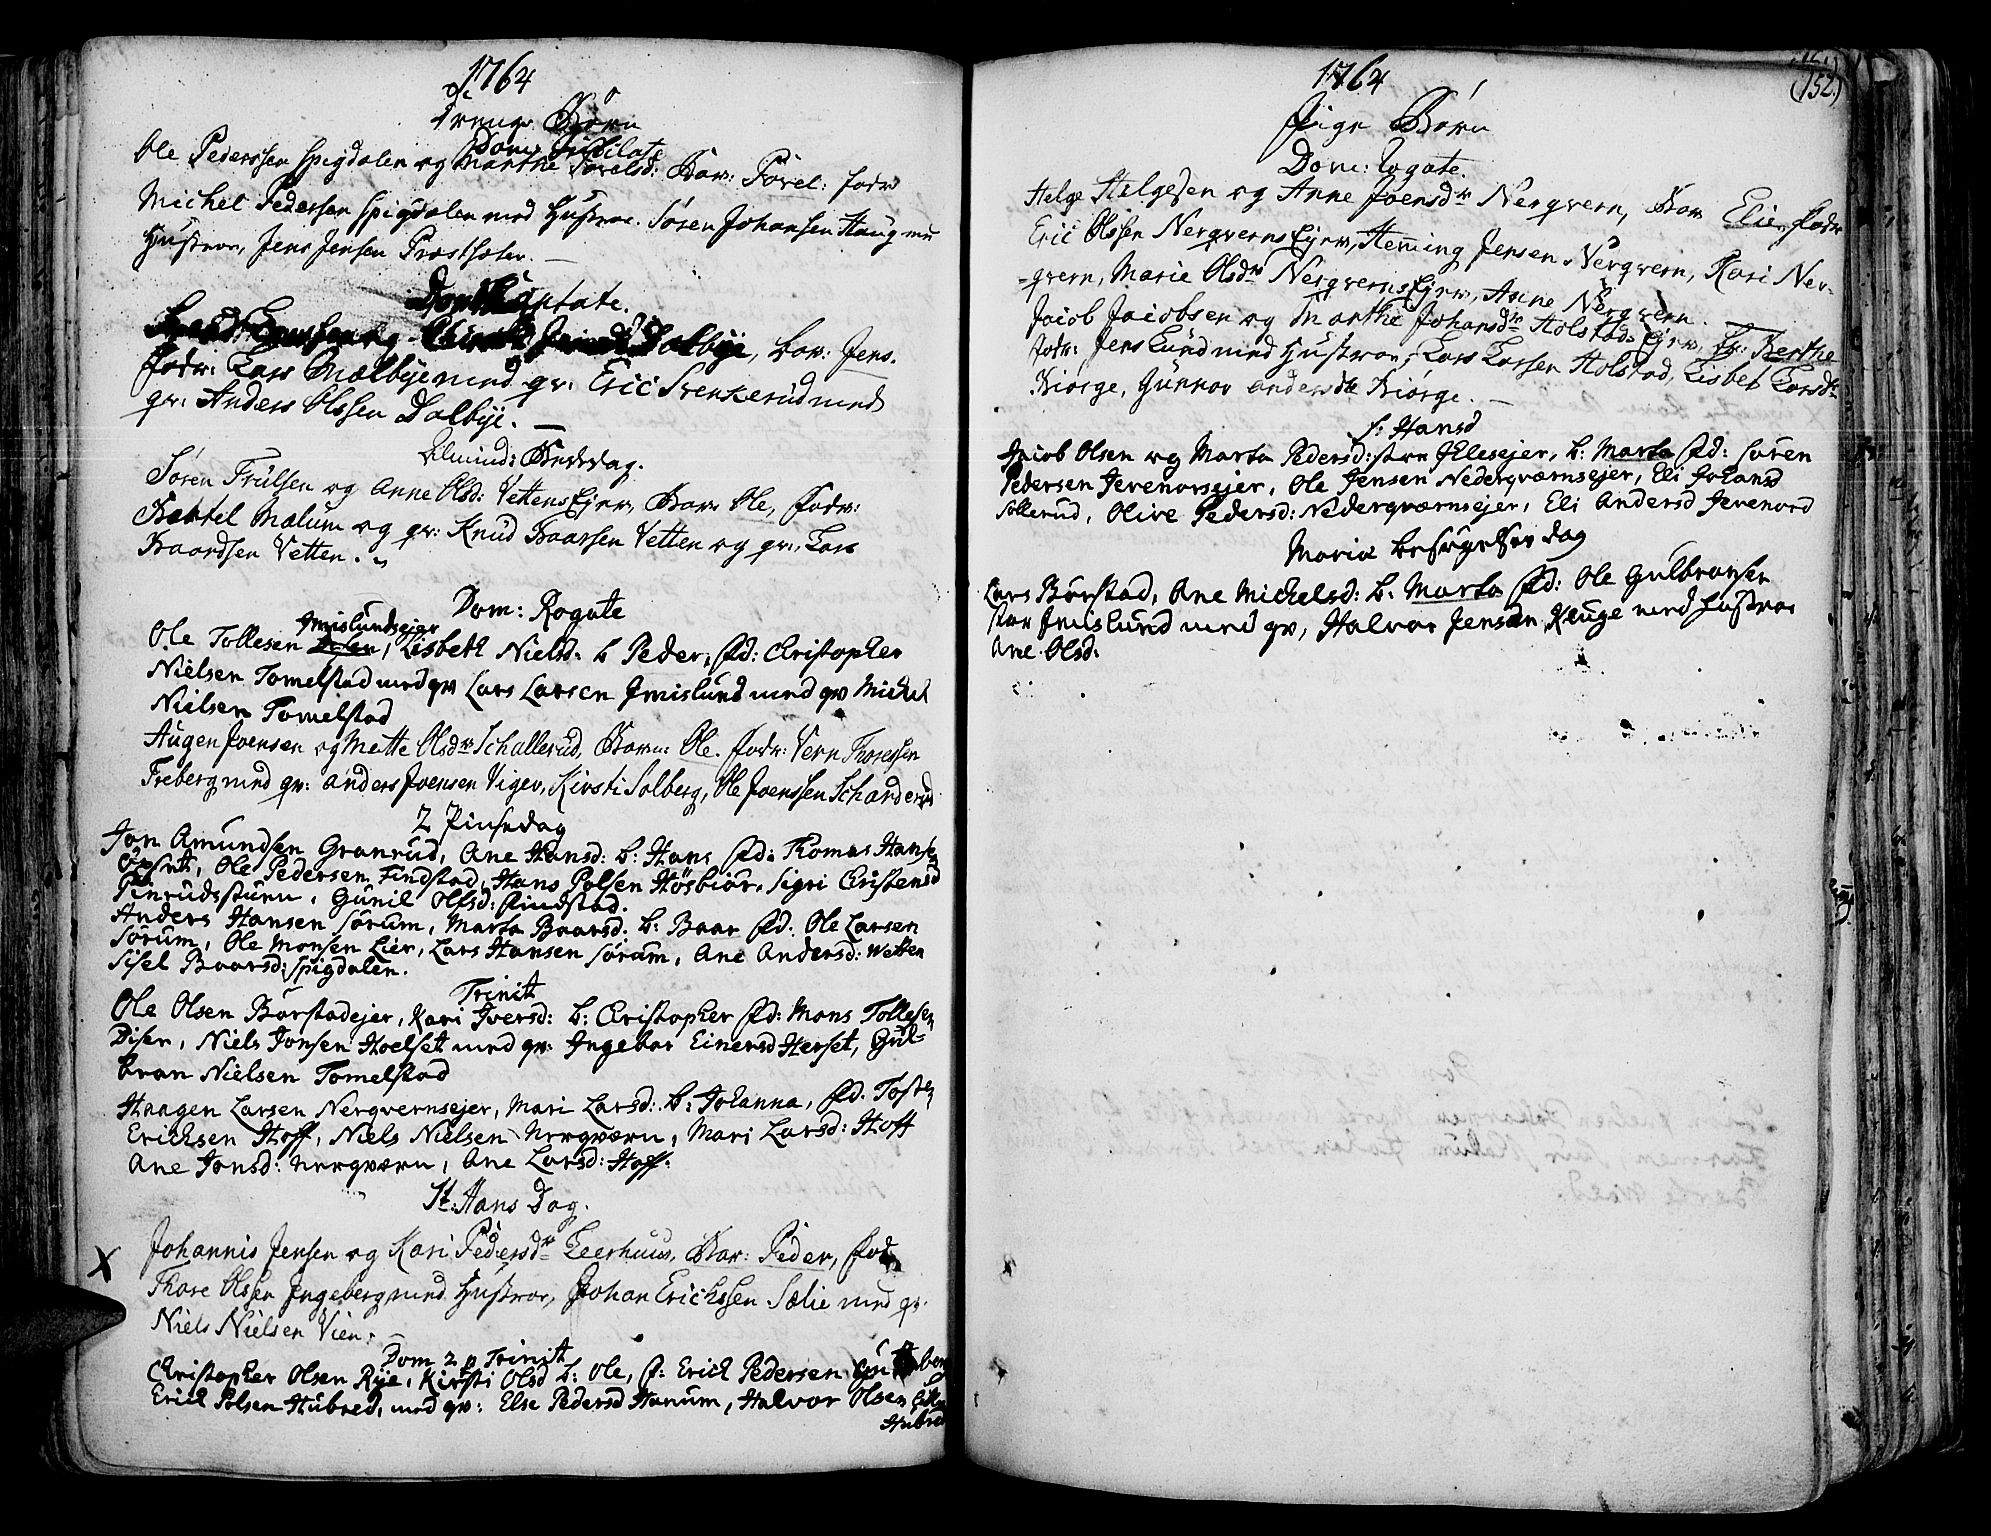 1764
Drenge Børn
Dom: Jubilate
Ole Pederssen Spigdalen og Marthe Povelsd: Bar: Povel: fadr
Michel Pedersen Spigdalen med Hustroe. Søren Johansen Haug med
Hustroe, Jens Jensen Prestsæter. —
Dom Cantate.
og Dalbye, bar: Jens.
fadr: Lars Mælbye med qv: Eric Svenkerud med
qv: Anders Olssen Dalbye. —
Almind: Bededag.
Søren Trulsen og Anne Olsd: Vettens Ejer, Bar: Ole, fadr:
Bertel Mælum og qv: Knud Baarsen Vetten og qv: Lars
Baardsen Vetten.
Dom: Rogate
Imislundsejer
Ole Tollesen, Lisbeth Nielsd: b Peder, fd: Christopher
Nielsen Tomelstad med qv Lars Larsen Imislund med qv Michel
Nielsen Tomelstad
Augen Joensen og Mette Olsdr Schallerud, Barn: Ole. fadr: Vern Thoressen
Freberg med qv: Anders Joensen Viger, Kirsti Solberg, Ole Joenssen Schanderud
2 Pinsedag
Jon Amundsen Granrud, Ane Hansd: b: Hans fd: Thomas Hansen
Opset, Ole Pedersen Findstad, Hans Polsen Høsbiør, Sigri Cristensd
Finrudsstuen, Gunil Olfsd: Findstad.
Anders Hansen Sørum, Marta Baarsd: b: Baar fd: Ole Larsen
Sørum, Ole Monsen Lier, Lars Hansen Sørum, Ane Andersd: Wetten
Sisel Baarsd: Spigdalen.
Trinit
Ole Olsen Børstadejer, Kari Iversd: b: Christopher fd: Mons Tollesen
Disen, Niels Jonsen Hoelset med qv: Ingebor Einersd Herset, Gul-
bran Nielsen Tomelstad
Haagen Larsen Nergvernsejer, Mari Larsd: b: Johanna, fd. Tosten
Erichsen Hoff, Niels Nielsen Nergværn, Mari Larsd: Hoff
Ane Jonsd: Nergværn, Ane Larsd: Hoff.
St: Hans Dag.
X Johannis Jensen og Kari Pedersdr Leerhuus, Bar: Peder, fadr
Thore Olssen Ingeberg med Hustroe, Johan Erichssen Sælie med qv.
Niels Nielsen Vien. —
Dom 2 p Trinit
Christopher Olsen Rye, Kirsti Olsd b: Ole, f: Erick Pedersen
Erick Polsen Hubred, med qv: Else Pedersd Hanum, Halvor Olsen
Hubred
1764
(152)
Pige Børn
Dom: Rogate.
Helge Helgesen og Anne Joensdr Nergvern, Bar Elie, fadr
Eric Olssen Nergverns Ejer, Heming Jensen Nergvern, Kari Ner-
-gvern, Marie Olsdr Nergverns Ejer, Anne Nergvern. —
Jacob Jacobsen og Marthe Johansdr Holstads Ejer, Br: Berthe
fadr: Jens Lund med Hustroe, Lars Larsen Holstad, Lisbet Larsdr
Kiørge, Gunnor Andersdr Kiørge. —
S: Hansd
Jacob Olsen og Marta Pedersd: store Jelesejer, b: Marta fd: Soren
Pedersen Jevenorsejer, Ole Jensen Nedergværnsejer, Eli Johansd
Sollerud, Olive Pedersd: Nedergværnsejer, Eli Andersd Jevenord
Mariæ besøgelses dag
Lars Børstad, Ane Michelsd: b: Marta fd: Ole Gulbransen
store Imislund med qv, Halvor Jensen Kluge med Hustroe
Ane Olsd: